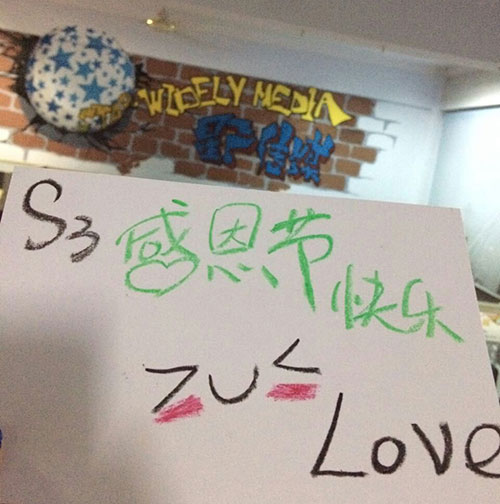 WIDELY MEDIA
S3 感恩节快乐
>u<
Love